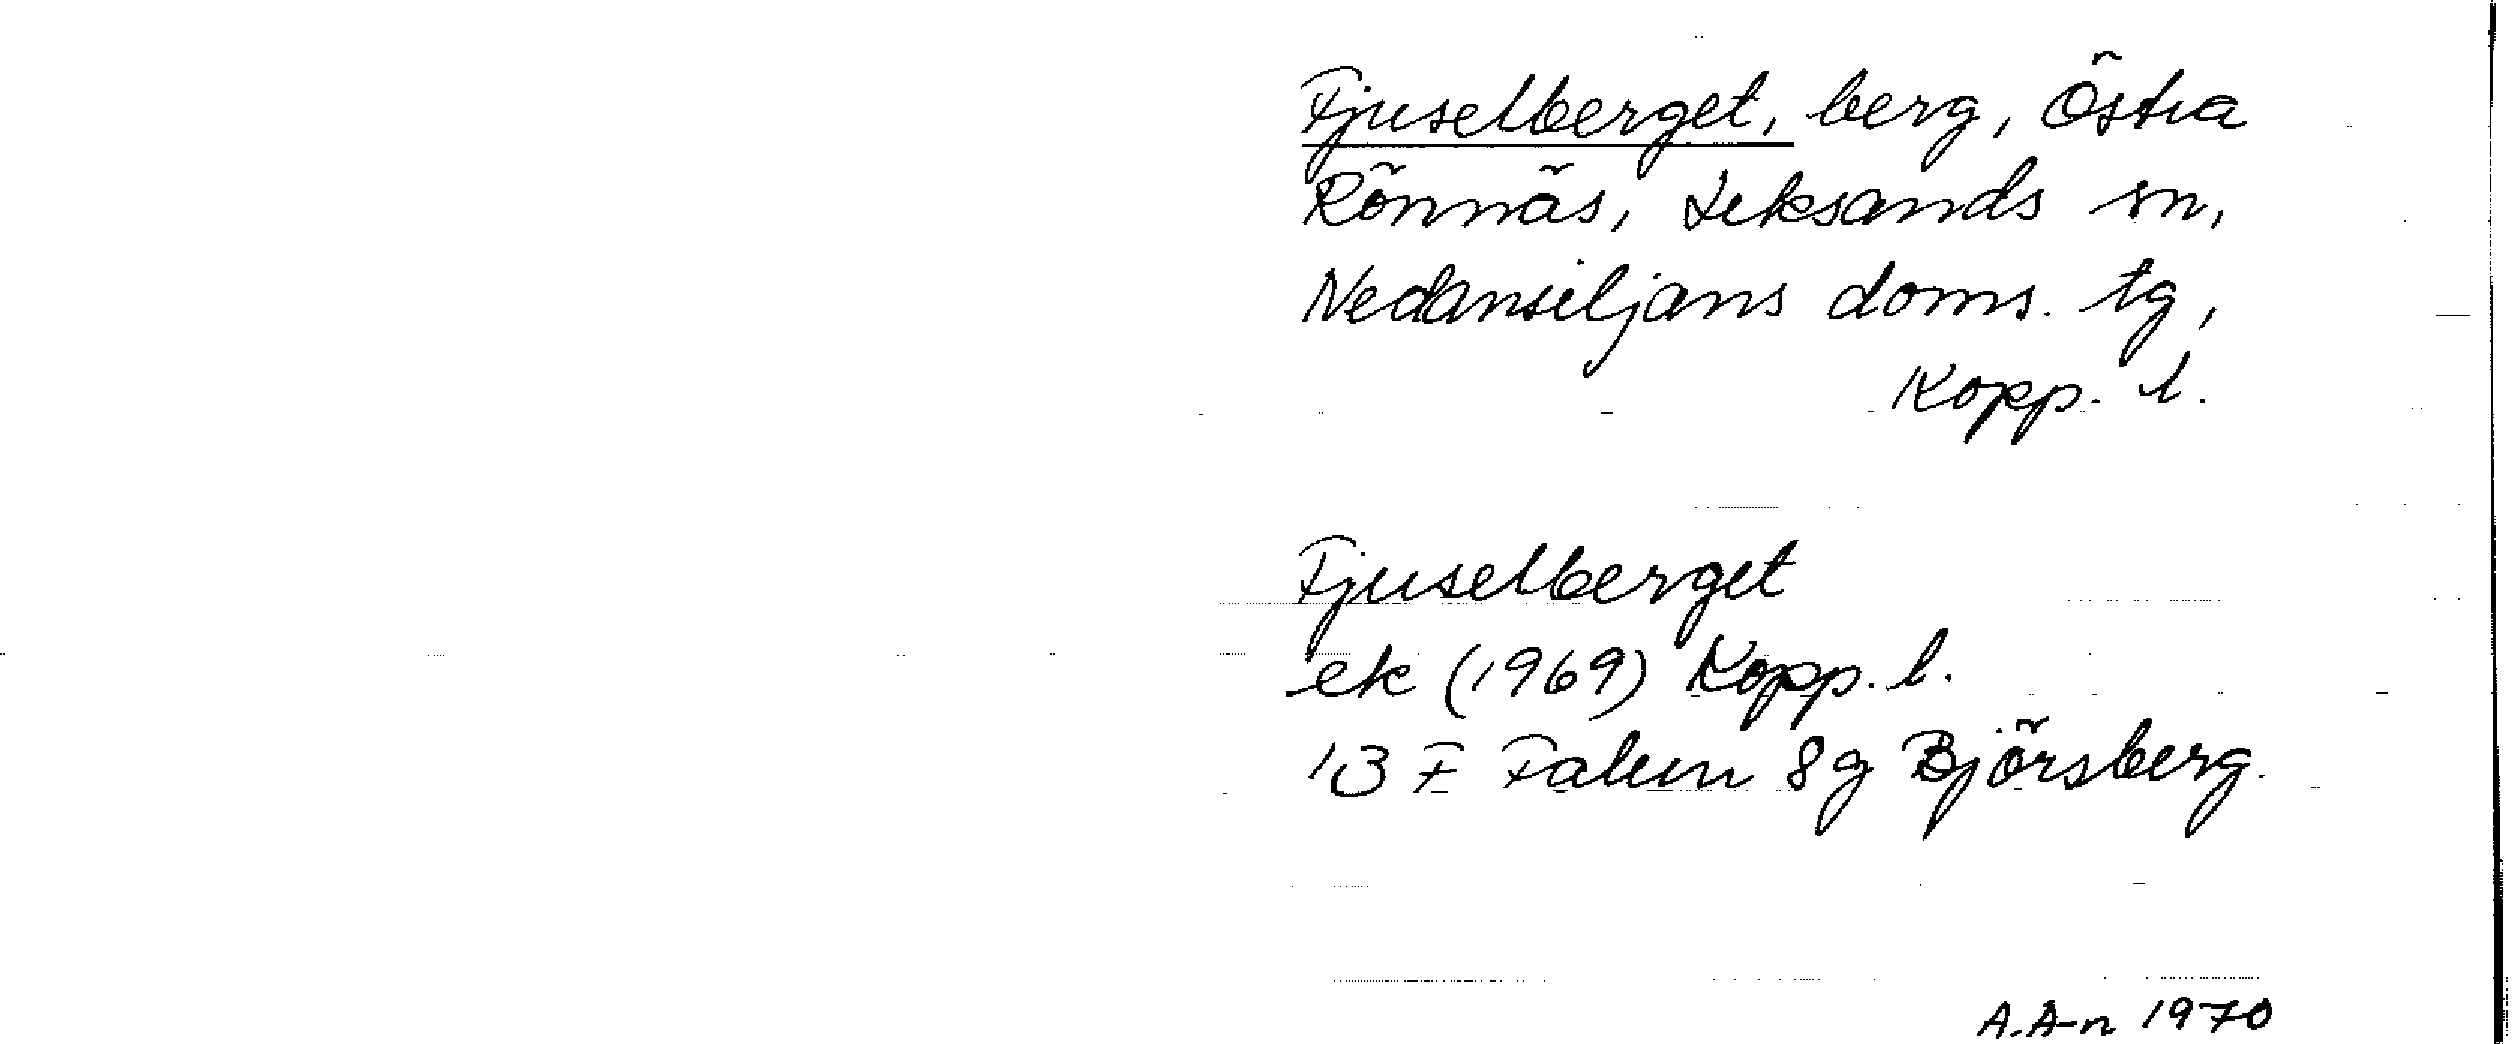 Fjuselberget, berg, Östra
Rönnäs, Leksands sn,
Nedansiljans doms. tg,
Kopp. l.
Fjuselberget
ek (1969) Kopp. l.
13 F Falun 8g Björsberg.
A.A-n 1970